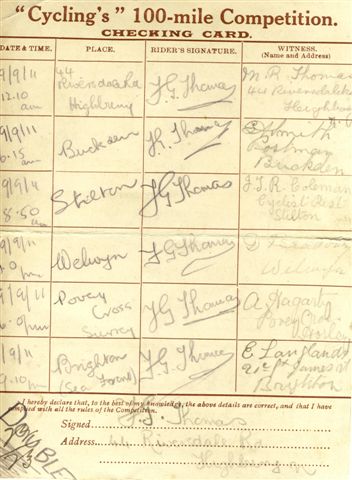 "Cycling's" 100-mile Competition.
CHECKING CARD.
DATE & TIME. PLACE. RIDER'S SIGNATURE. WITNESS.
(Name and Address)
9/9/11 44 FG Thomas M R Thomas
12.10 Riversdale Rd 44 Riversdale
am Highbury
9/9/11 Buckden FG Thomas Smith
6.15 Postman
am Buckden
9/9/11 Stilton FG Thomas J.J.R. Coleman
8.50 Cyclist Rest
am Stilton
9/9/11 Welwyn FG Thomas
Welwyn
9/9/11 Povey FG Thomas A Hagarty
Cross Povey Cross
Surrey Horley
9/9/11 Brighton FG Thomas E Langlands
9.10 (Sea Front) St James St
Brighton
I hereby declare that, to the best of my knowledge, the above details are correct, and that I have
complied with all the rules of the Competition.
Signed F.G. Thomas
Address 44 Riversdale Rd
Highbury N